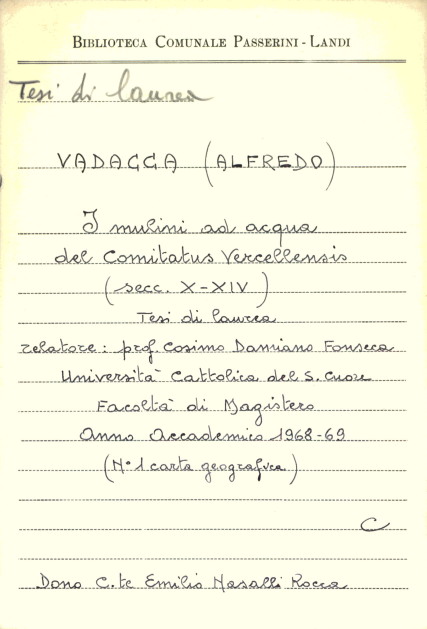 BIBLIOTECA COMUNALE PASSERINI - LANDI
Tesi di laurea
VADACCA (ALFREDO)
I mulini ad acqua
del Comitatus Vercellensis
(secc. X-XIV)
Tesi di laurea
relatore: prof. Cosimo Damiano Fonseca
Università Cattolica del S. Cuore
Facoltà di Magistero
Anno Accademico 1968-69
(N° 1 carta geografica)
C
Dono C.te Emilio Nasalli Rocca